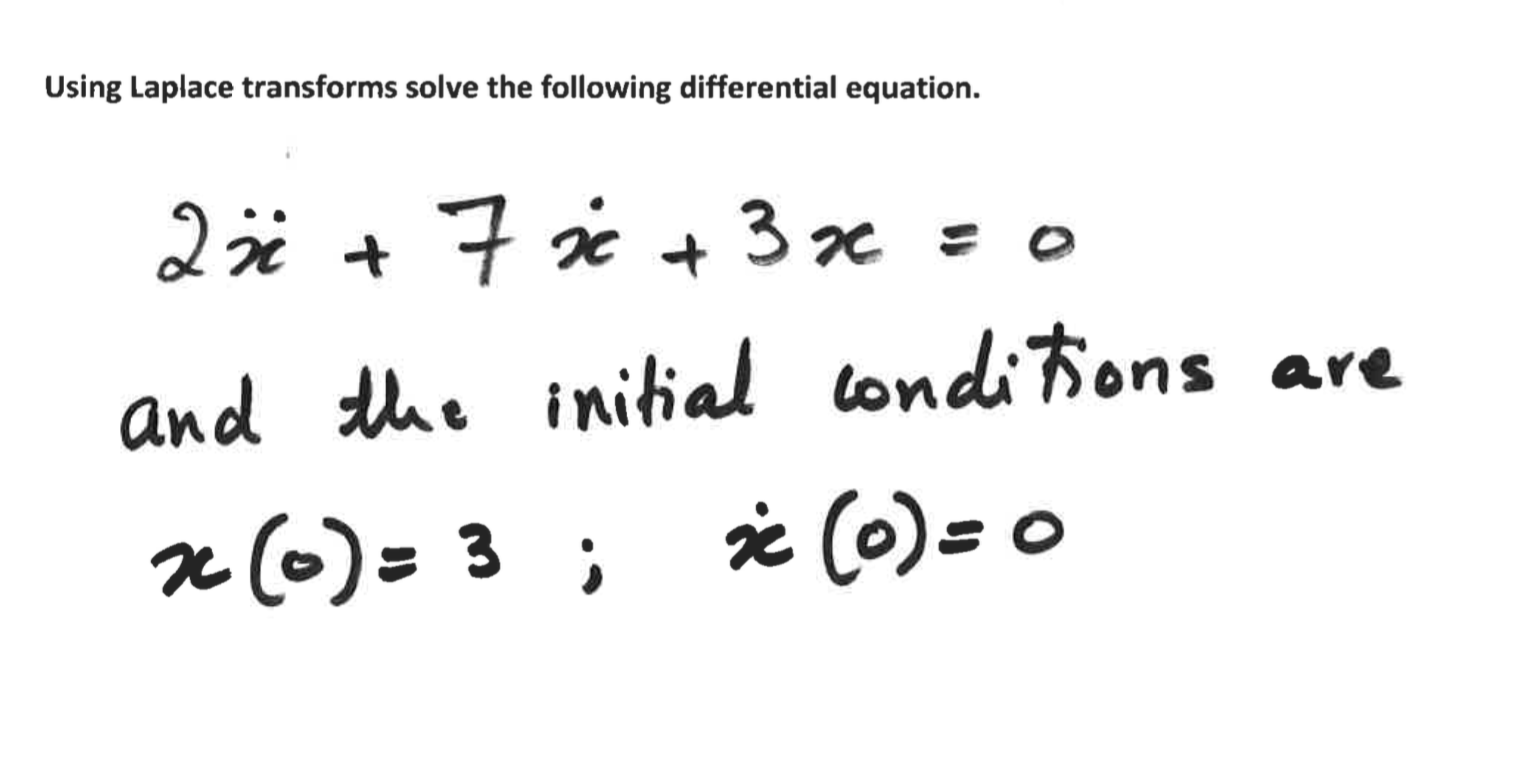 Using Laplace transforms solve the following differential equation.
2ẍ + 7ẋ + 3x = 0
and the initial conditions are
x(0) = 3 ; ẋ(0) = 0